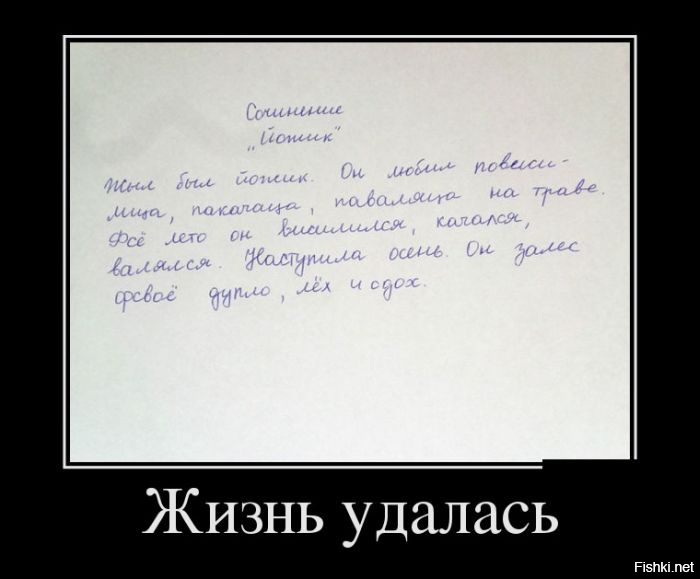 Сочинение
„Йожик"
Жыл был йожик. Он любил повесили-
лица, пакачаца, паваляца на траве.
Фсё лето он висилился, качался,
валялся. Наступила осень. Он залес
фсваё дупло, лёх и сдох.
Жизнь удалась
Fishki.net